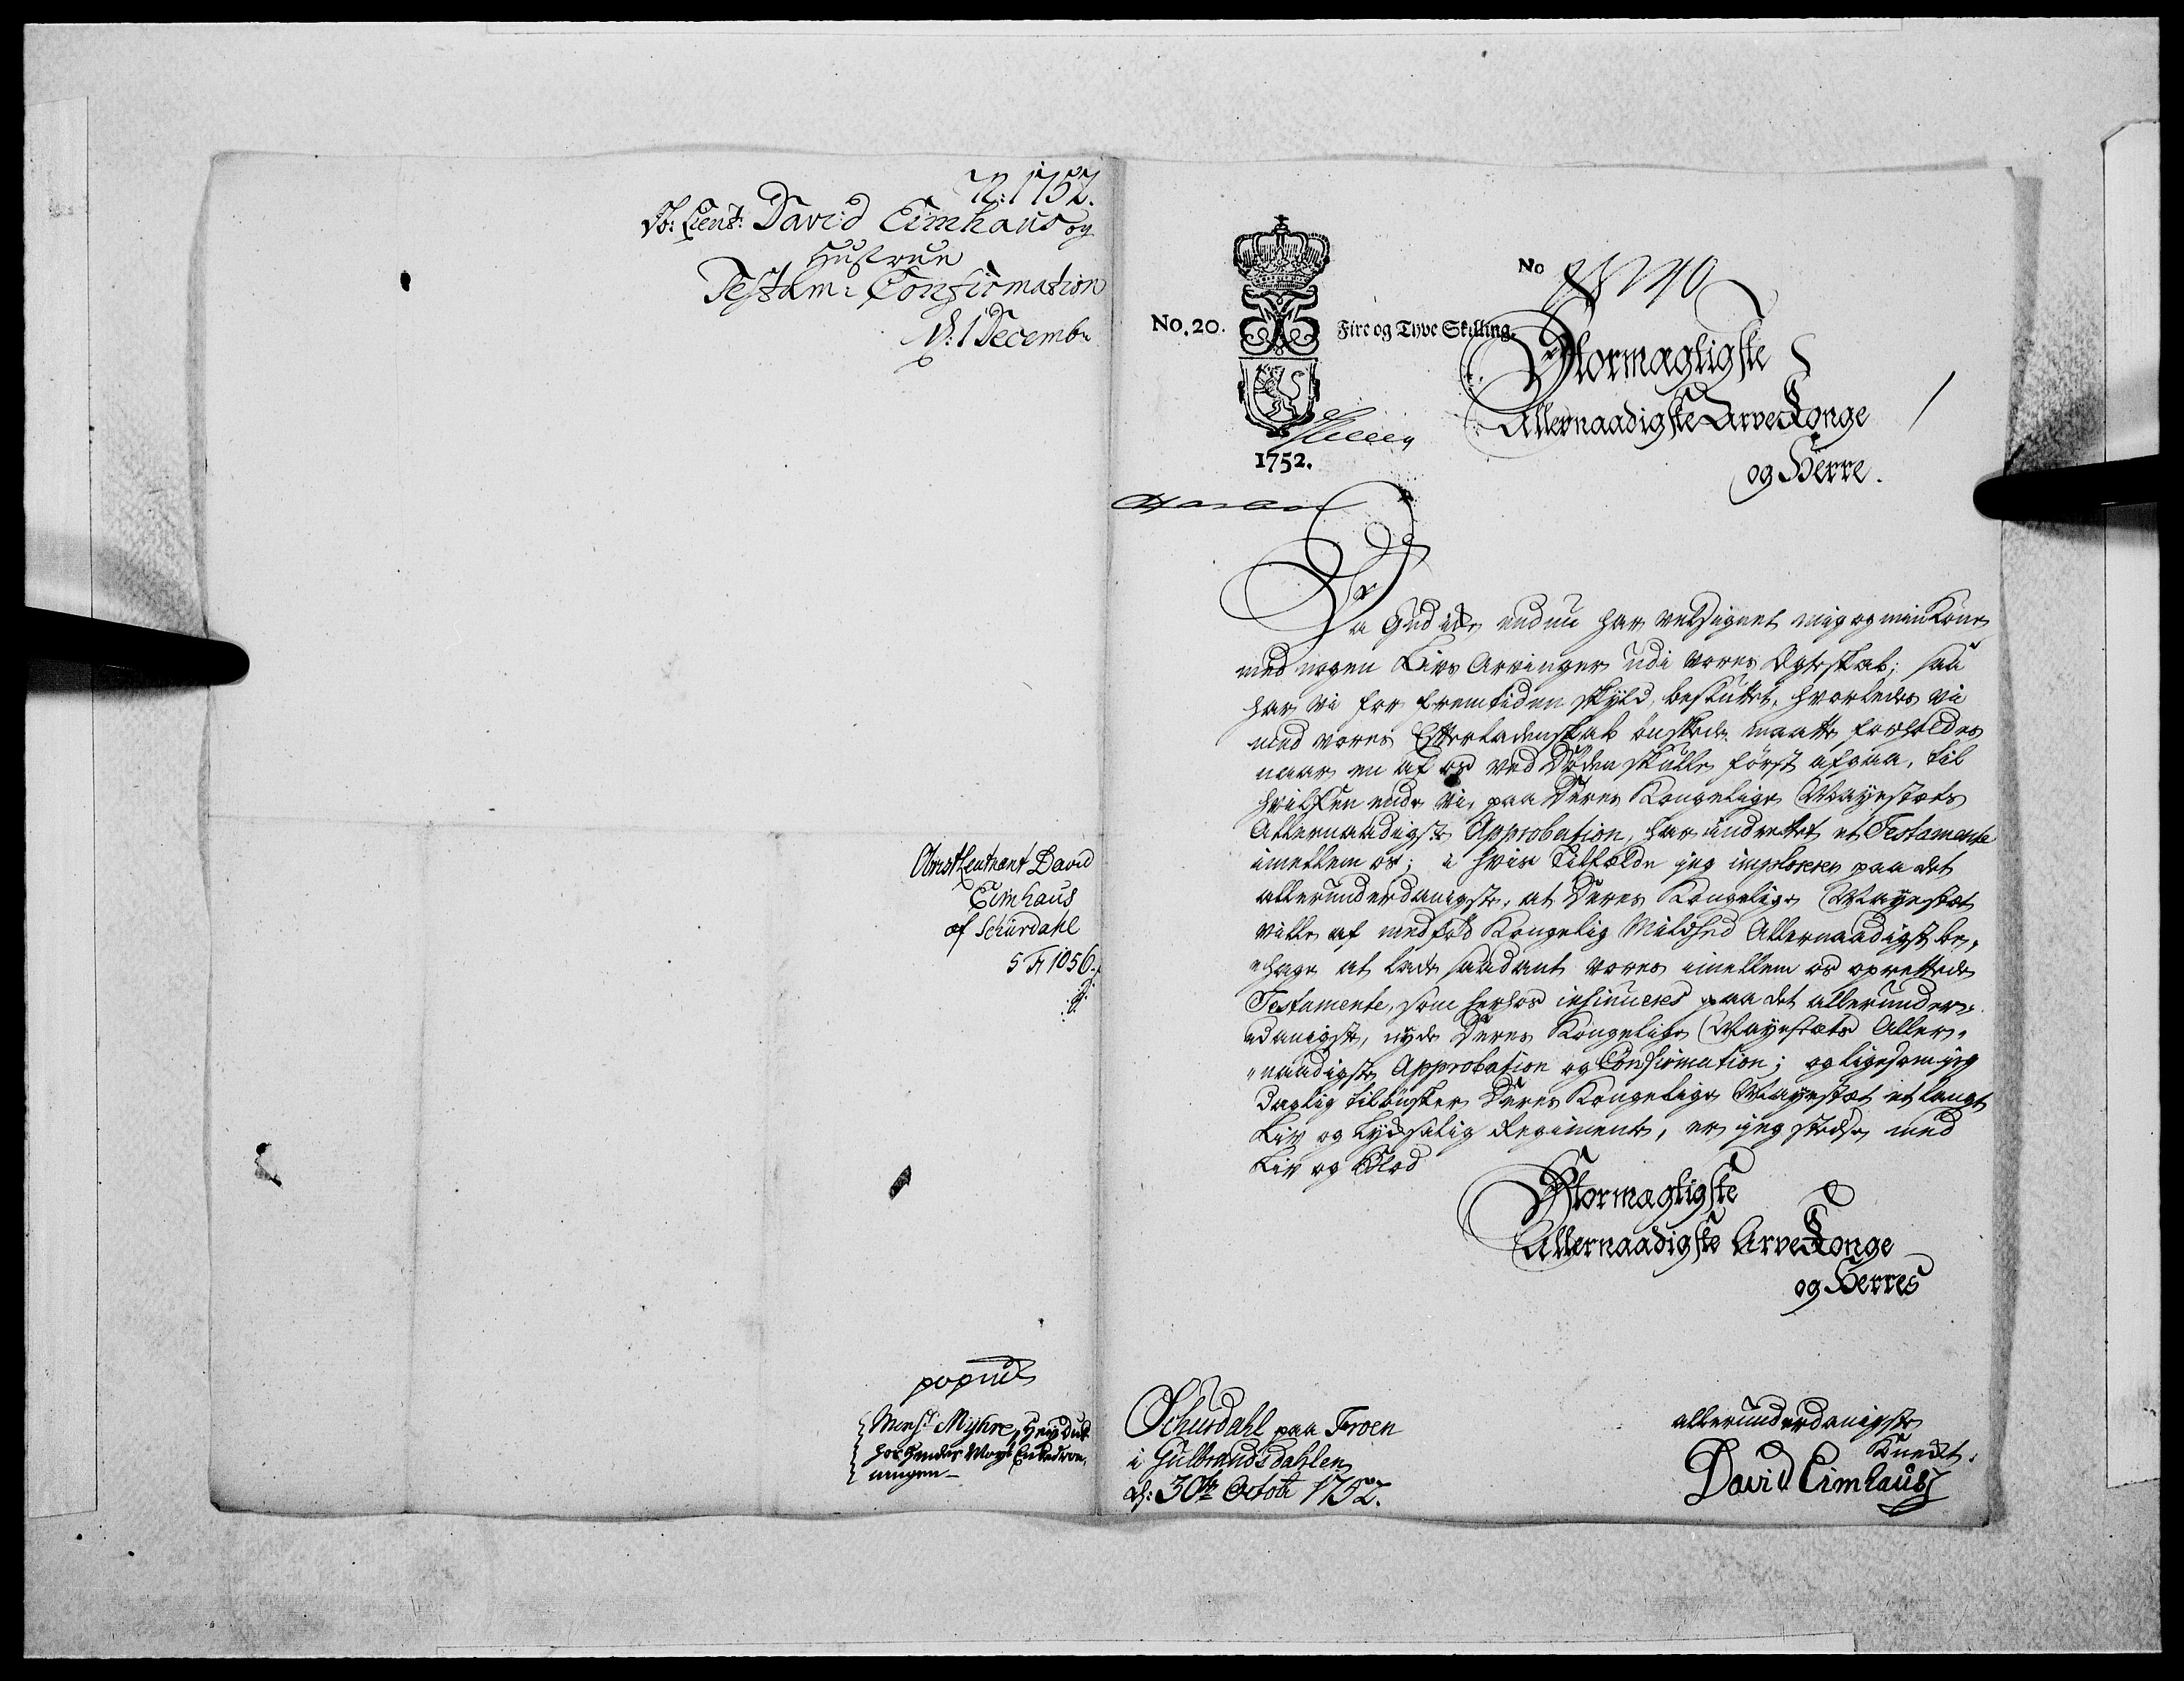 N: 1752.
Ob: Lieut: David Eimhaus og
Hustrue
Testam: Confirmation
d: 1 Decembr
Obristleutnant David
Eimhaus
af Schurdahl
5 F 1056.
Mons.r Myhre, Heyduk
hos Hendes Mayt Enkedron-
ningen
No. 20.
Fire og Tyve Skilling.
1752.
No
Stormægtigste
Allernaadigste Arve Konge
og Herre.
Da Gud iche endnu har velsignet mig og min Kone
med nogen Livs Arvinger udi vores Egteskab; saa
har vi for fremtiden skyld, besluttet, hvorledes vi
med vores Efterladenskab ønskede maatte forholdes
naar en af os ved Døden skulle først afgaa, til
hvilken ende vi, paa Deres Kongelige Mayestæts
Allernaadigste Approbation, har indrettet et Testamente
imellem os; i hvis tilfælde jeg imploserer paa det
allerunderdanigste, at Deres Kongelige Mayestæt
ville af medfød Kongelig Mildhed Allernaadigst be-
hage at lade saadant vores imellem os oprettede
Testamente, som herhos insinueres paa det allerunder-
danigste, nyde Deres Kongelige Mayestæts Aller-
naadigste Approbation og Confirmation; og ligesom jeg
daglig tilønsker Deres Kongelige Mayestæt et langt
Liv og Lydsalig Regimente, er jeg stedse med
Liv og Blod
Stormægtigste
Allernaadigste Arve Konge
og Herres
Schurdahl paa Froen
i Gulbrandsdahlen
d: 30te Octobr 1752.
allerunderdanigste
Knecht.
David Eimhaus